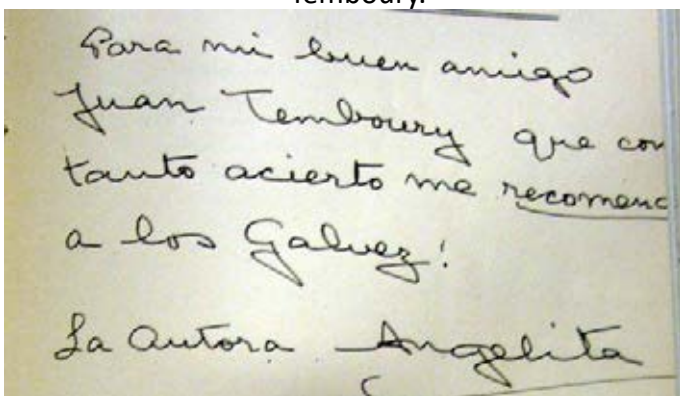 Temboury.
Para mi buen amigo
Juan Temboury que con
tanto acierto me recomend
a los Galvez!
La autora Angelita